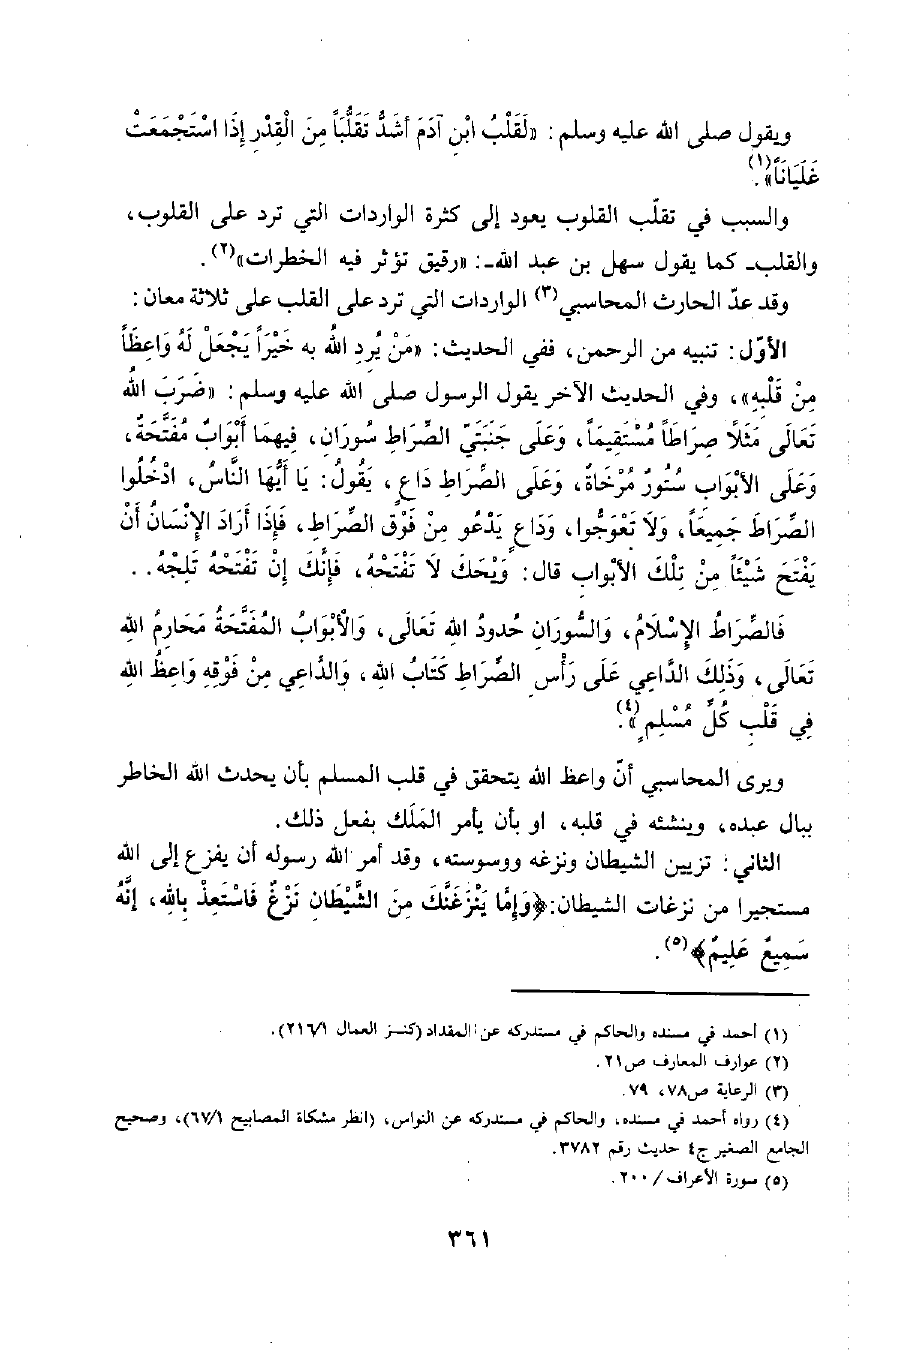 ويقول صلى الله عليه وسلم : «لَقَلْبُ ابْنِ آدَمَ أشَدُّ تَقَلُّبَاً مِنَ الْقِدْرِ إِذَا اسْتَجْمَعَتْ
غَلَيَانَاً»(١).
والسبب في تقلّب القلوب يعود إلى كثرة الواردات التي ترد على القلوب،
والقلب_ كما يقول سهل بن عبد الله_: «رقيق تؤثر فيه الخطرات»(٢).
وقد عدّ الحارث المحاسبي(٣) الواردات التي ترد على القلب على ثلاثة معان:
الأوّل: تنبيه من الرحمن، ففي الحديث: «مَنْ يُرِدِ اللهُ به خَيْرَاً يَجْعَلْ لَهُ وَاعِظَاً
مِنْ قَلْبِهِ»، وفي الحديث الآخر يقول الرسول صلى الله عليه وسلم: «ضَرَبَ اللهُ
تَعَالَى مَثَلًا صِرَاطَاً مُسْتَقِيمَاً، وَعَلَى جَنَبَتَيِ الصِّرَاطِ سُورَانِ، فِيهِمَا أَبْوَابٌ مُفَتَّحَةٌ،
وَعَلَى الأبْوَابِ سُتُورٌ مُرْخَاةٌ، وَعَلَى الصِّرَاطِ دَاعٍ، يَقُولُ: يَا أَيُّهَا النَّاسُ، ادْخُلُوا
الصِّرَاطَ جَمِيعَاً، وَلَا تَعْوَجُّوا، وَدَاعٍ يَدْعُو مِنْ فَوْقِ الصِّرَاطِ، فَإِذَا أَرَادَ الإِنْسَانُ أَنْ
يَفْتَحَ شَيْئَاً مِنْ تِلْكَ الأبْوابِ قال: وَيْحَكَ لَا تَفْتَحْهُ، فَإِنَّكَ إِنْ تَفْتَحْهُ تَلِجْهُ..
فَالصِّرَاطُ الإِسْلَامُ، وَالسُّورَانِ حُدودُ اللهِ تَعَالَى، وَالْأَبْوَابُ المُفَتَّحَةُ مَحَارِمُ اللهِ
تَعَالَى، وَذَلِكَ الدَّاعِي عَلَى رَأْسِ الصِّرَاطِ كَتَابُ اللهِ، وَالدَّاعِي مِنْ فَوْقِهِ وَاعِظُ اللهِ
فِي قَلْبِ كُلِّ مُسْلِمٍ»(٤).
ويرى المحاسبي أنّ واعظ الله يتحقق في قلب المسلم بأن يحدث الله الخاطر
ببال عبده، وينشئه في قلبه، او بأن يأمر المَلَك بفعل ذلك.
الثاني: تزيين الشيطان ونزغه ووسوسته، وقد أمر الله رسوله أن يفزع إلى الله
مستجيرا من نزغات الشيطان:﴿وَإِمَّا يَنْزَغَنَّكَ مِنَ الشَّيْطَانِ نَزْغٌ فَاسْتَعِذْ بِاللهِ، إِنَّهُ
سَمِيعٌ عَلِيمٌ﴾(٥).
(١) أحمد في مسنده والحاكم في مستدركه عن المقداد (كنـز العمال ٢١٦/١).
(٢) عوارف المعارف ص٢١.
(٣) الرعاية ص٧٨، ٧٩.
(٤) رواه أحمد في مسنده، والحاكم في مستدركه عن النواس، (انظر مشكاة المصابيح ٦٧/١)، وصحيح
الجامع الصغير ج٤ حديث رقم ٣٧٨٢.
(٥) سورة الأعراف/ ٢٠٠.
٣٦١